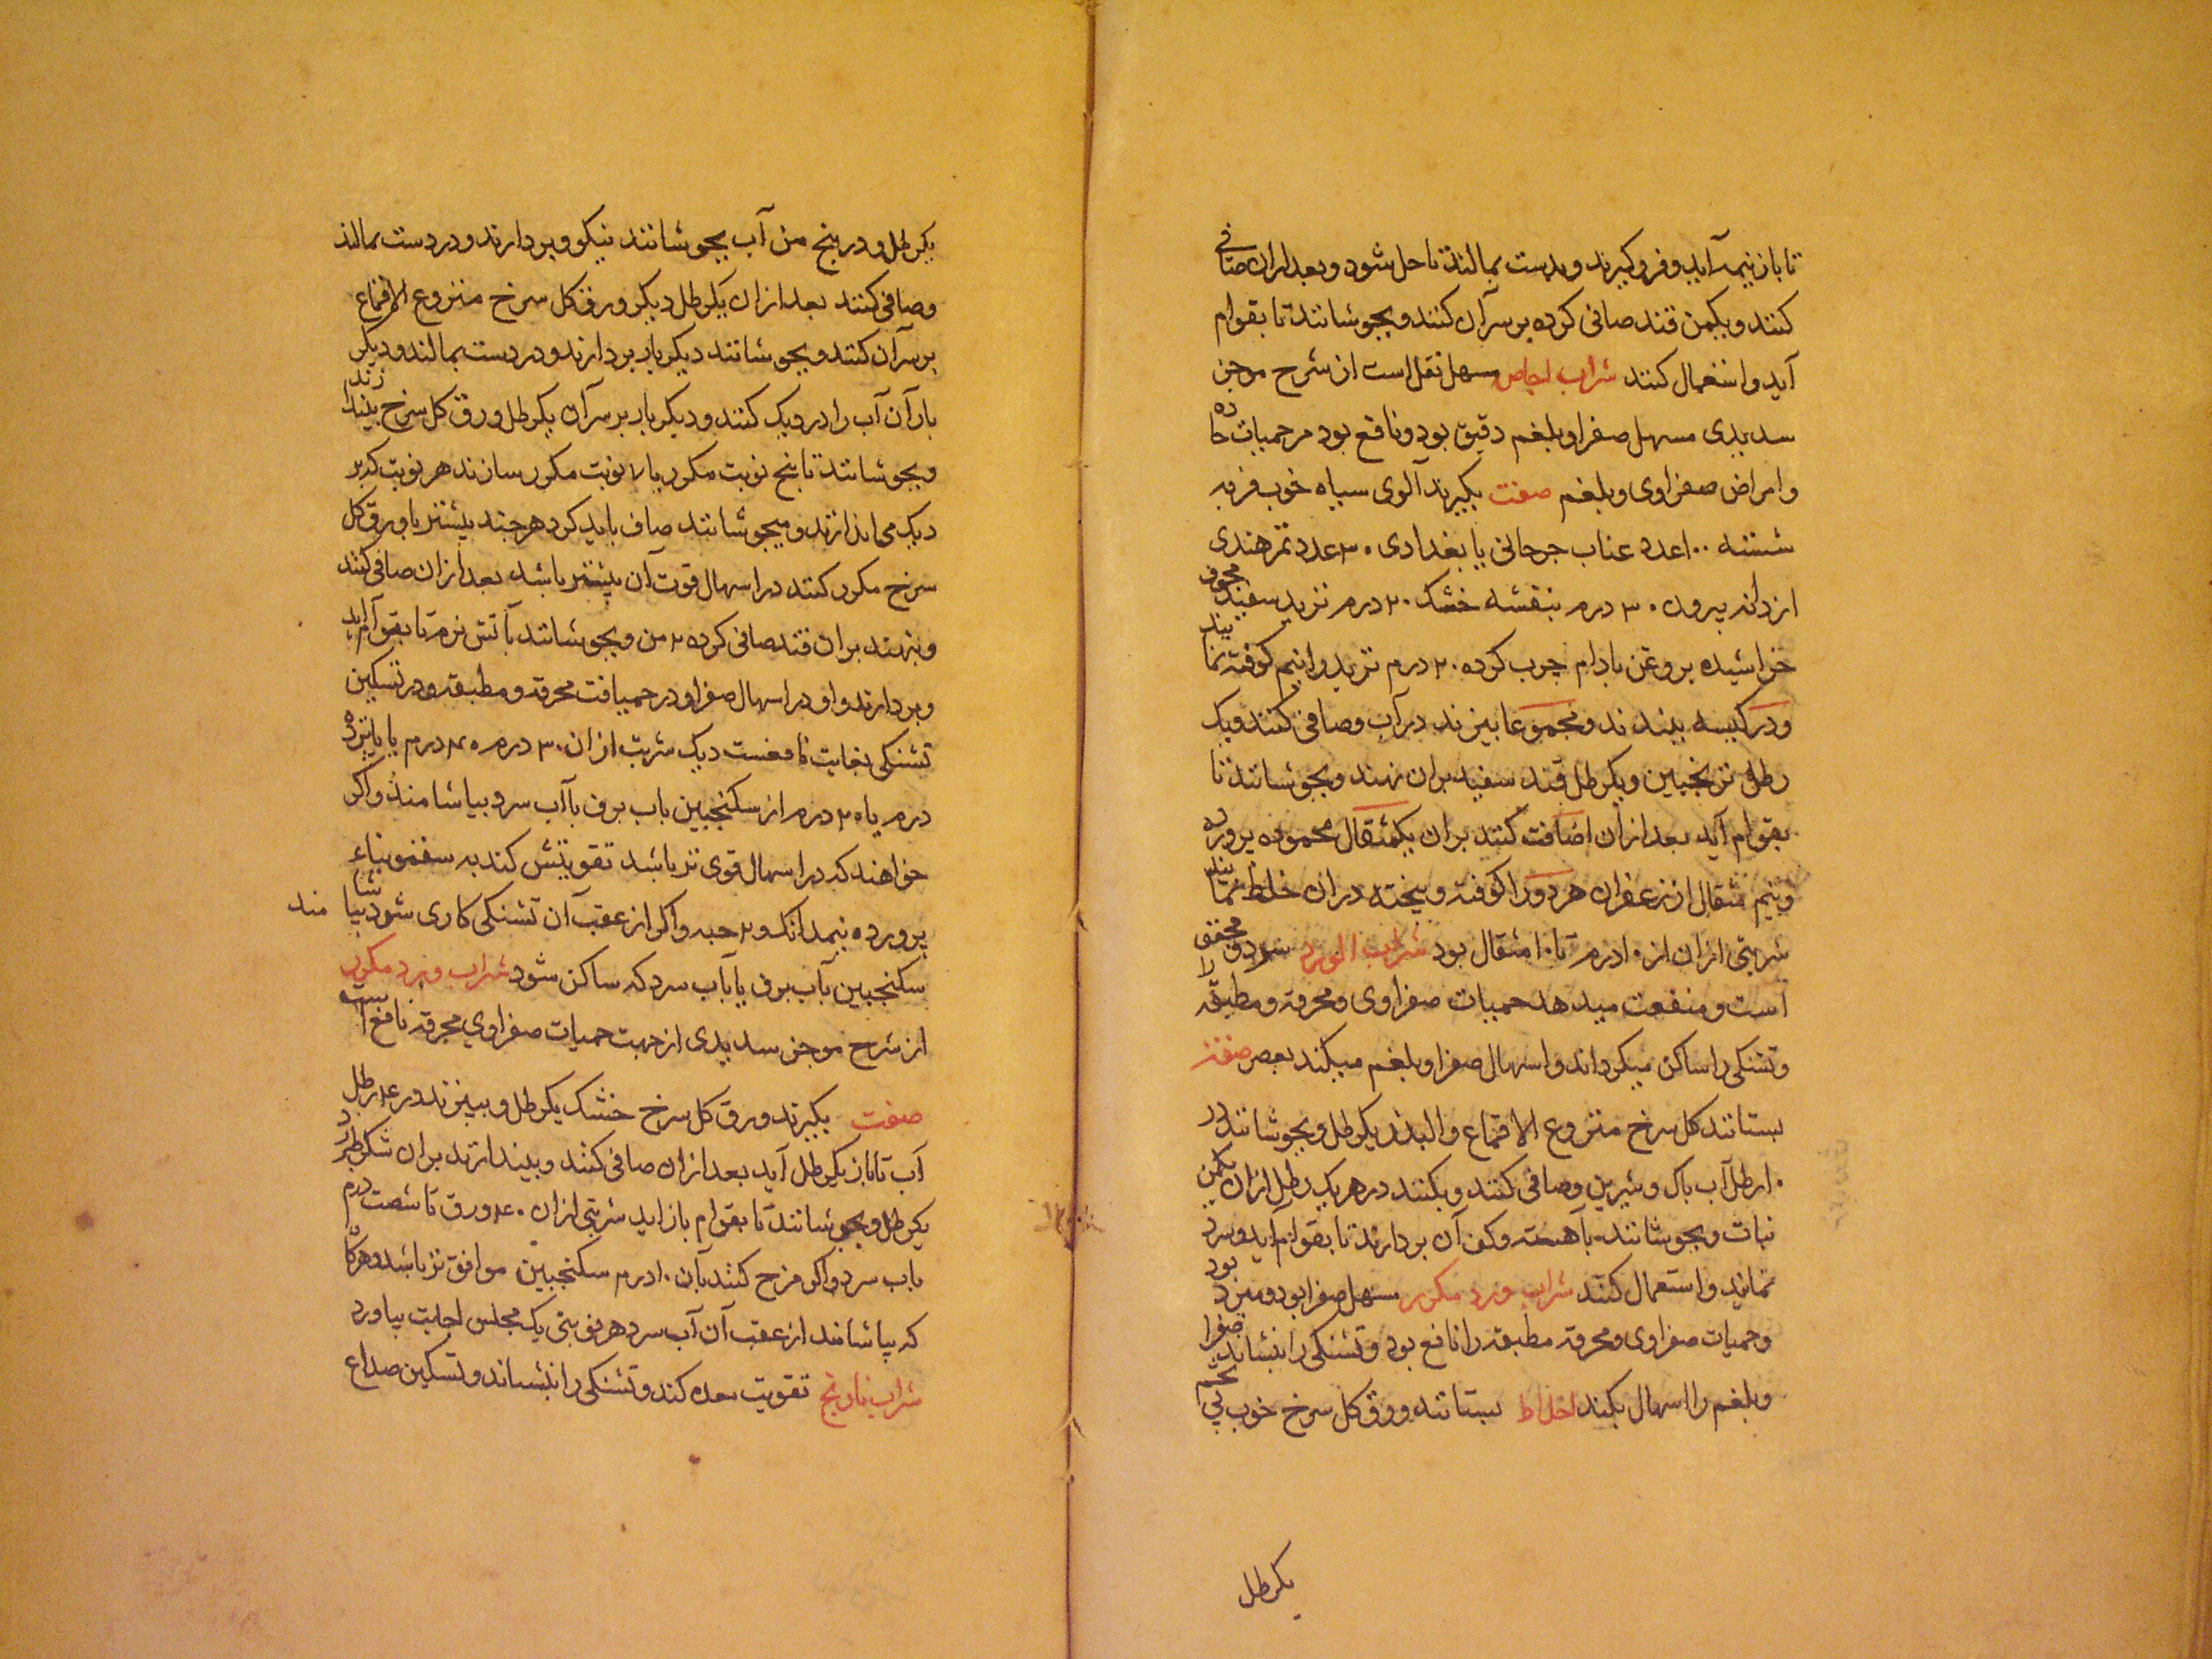 تا باز نیمه آید و فرو کیرند و بدست بمالند تا حل شود و بعد ازان صافی
کنند و یکمن قند صافی کرده بر سر آن کنند و بجوشانند تا بقوام
آید و استعمال کنند شراب اجاص مسهل نقل است از شرح موجز
سدیدی مسهل صفرا و بلغم دقیق بود و نافع بود مر حمیات حاده
و امراض صفراوی و بلغم صفت بکیرند آلوی سیاه خوب فربه
شسته ۱۰۰ عدد عناب جرجانی یا بغدادی ۳۰ عدد تمر هندی
از دانه بیرون ۳۰ درم بنفشه خشک ۲۰ درم تربد سفید مجوف
خراشیده بروغن بادام چرب کرده ۲۰ درم تربد را نیم کوفته نمایند
و در کیسه بندند و مجموع را بپزند در آب و صافی کنند و یک
رطل ترنجبین و یکرطل قند سفید بران نهند و بجوشانند تا
بقوام آید بعد ازان اضافت کنند بران یکمثقال محموده پرورده
و نیم مثقال از زعفران هر دو را کوفته و بیخته دران خلط نمایند
شربتی ازان از ۱۰ درم تا ۱۰ مثقال بود شراب الورد
است و منفعت میدهد حمیات صفراوی و محرقه و مطبقه را
و تشنکی را ساکن میکرداند و اسهال صفرا و بلغم میکند بعصر صفته
بستانند کل سرخ منزوع الاقماع و البذر یکرطل و بجوشانند در
۱۰ رطل آب پاک و شیرین و صافی کنند و بکنند در هر یک رطل ازان یکمن
نبات و بجوشانند بآهسته و کف آن بردارند تا بقوام آید و سرد
نمایند و استعمال کنند شراب ورد مکرر مسهل صفرا بود و مبرد بود
و حمیات صفراوی و محرقه مطبقه را نافع بود و تشنکی را بنشاند صفرا
و بلغم را اسهال بکند اخلاط بستانند ورق کل سرخ خوب بی تخم
یکرطل
یکرطل و در پنج من آب بجوشانند نیکو و بردارند و در دست بمالند
و صافی کنند بعد ازان یکرطل دیکر ورق کل سرخ منزوع الاقماع
بر سر آن کنند و بجوشانند دیکر بار بردارند و در دست بمالند و دیکر
بار آن آب را در دیک کنند و دیکر بار بر سر آن یکرطل ورق کل سرخ بیندازند
و بجوشانند تا پنج نوبت مکرر یا ۷ نوبت مکرر سازند هر نوبت که در
دیک می اندازند و میجوشانند صاف باید کرد هر چند بیشتر با ورق کل
سرخ مکرر کنند در اسهال قوت آن بیشتر باشد بعد ازان صافی کنند
و بنهند بران قند صافی کرده ۲ من و بجوشانند بآتش نرم تا بقوام آید
و بردارند و او در اسهال صفرا و در حمیات محرقه و مطبقه و در تسکین
تشنکی بغایت نافعست و یک شربت ازان ۳۰ درم ۴۰ درم با پانزده
درم یا ۲۰ درم از سکنجبین باب برف یا آب سرد بیاشامند و اکر
خواهند که در اسهال قوی تر باشد تقویتش کند به سقمونیاء
پرورده نیمدانک و ۲ حبه و اکر از عقب آن تشنکی کاری شود بیاشامند
سکنجبین بآب برف یا بآب سرد که ساکن شود شراب ورد مکرر
از شرح موجز سدیدی از جهت حمیات صفراوی محرقه نافع است
صفت بکیرند ورق کل سرخ خشک یکرطل و بپزند در ۴ رطل
آب تا باز یکرطل آید بعد ازان صافی کنند و بیندازند بران شکر طبرزد
یکرطل و بجوشانند تا بقوام باز اید شربتی ازان ۴۰ ورق تا شصت درم
باب سرد و اکر مزج کنند بآن ۱۰ درم سکنجبین موافق تر باشد و هرکاه
که بیاشامند از عقب آن آب سرد هر نوبتی یک مجلس اجابت بیاورد
شراب نارنج تقویت معده کند و تشنکی را بنشاند و تسکین صداع